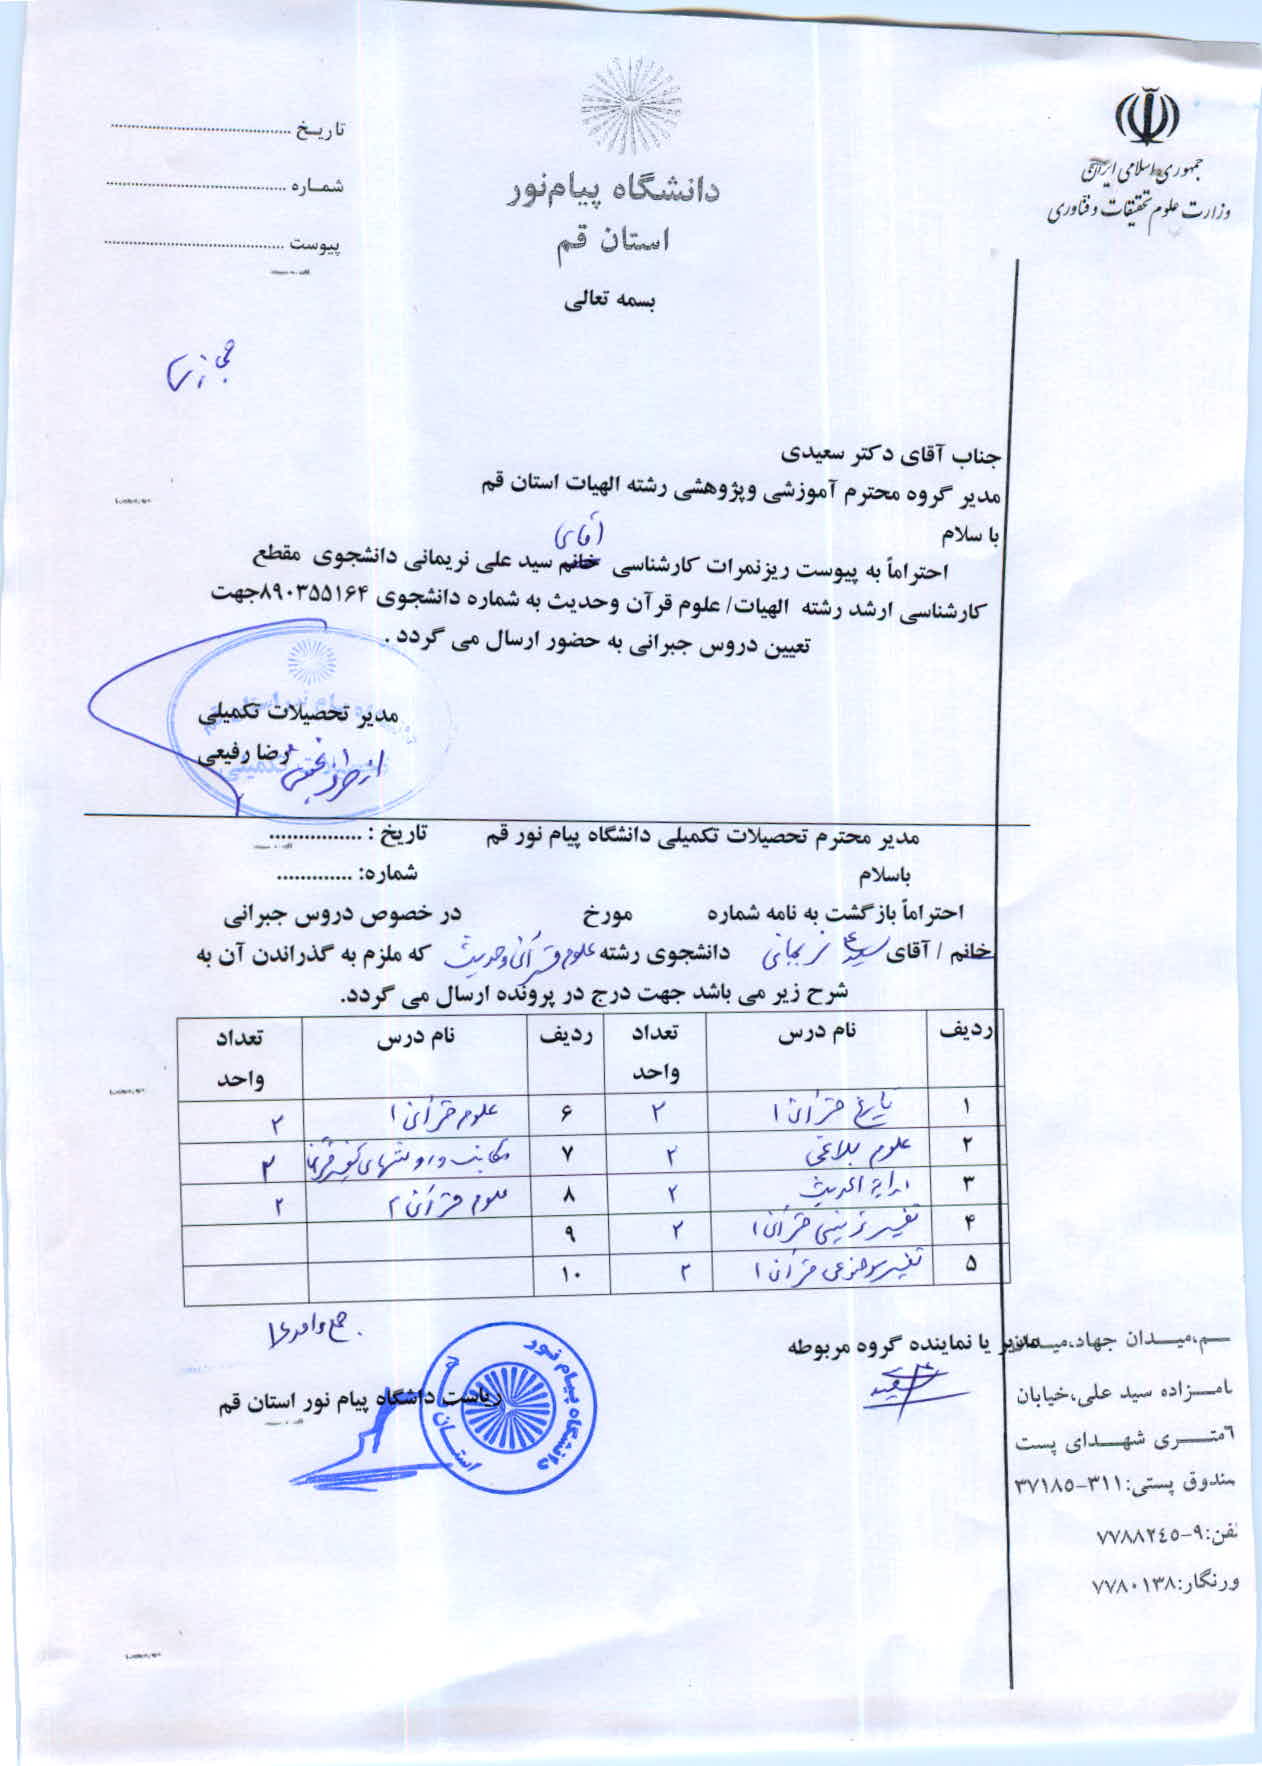 جمهوری اسلامی ایران
وزارت علوم تحقیقات و فناوری
دانشگاه پیام‌نور
استان قم
بسمه تعالی
تاریـخ ............................................
شمـاره ............................................
پیوست ............................................
جناب آقای دکتر سعیدی
مدیر گروه محترم آموزشی وپژوهشی رشته الهیات استان قم
با سلام
(آقای)
احتراماً به پیوست ریزنمرات کارشناسی خانم سید علی نریمانی دانشجوی مقطع
کارشناسی ارشد رشته الهیات/ علوم قرآن وحدیث به شماره دانشجوی ۸۹۰۳۵۵۱۶۴جهت
تعیین دروس جبرانی به حضور ارسال می گردد .
مدیر تحصیلات تکمیلی
رضا رفیعی
از طرف
مدیر محترم تحصیلات تکمیلی دانشگاه پیام نور قم تاریخ : ................
باسلام شماره: .............
احتراماً بازگشت به نامه شماره مورخ در خصوص دروس جبرانی
خانم / آقای سید علی نریمانی دانشجوی رشته علوم قرآنی وحدیث که ملزم به گذراندن آن به
شرح زیر می باشد جهت درج در پرونده ارسال می گردد.
ردیف نام درس تعداد واحد ردیف نام درس تعداد واحد
۱ تاریخ قرآن ۱ ۲ ۶ علوم قرآنی ۱ ۲
۲ علوم بلاغی ۲ ۷ مکاتب و روشهای تفسیر ۲
۳ درایة الحدیث ۲ ۸ علوم قرآنی ۲ ۲
۴ تفسیر ترتیبی قرآن ۱ ۲ ۹
۵ تفسیر موضوعی قرآن ۱ ۲ ۱۰
جمع واحد
مدیر یا نماینده گروه مربوطه
ریاست دانشگاه پیام نور استان قم
دانشگاه پیام نور
استان
ـم،میـدان جهاد،
امـزاده سید علی،خیابان
٦متـری شهـدای پست
صندوق پستی:۳۱۱-۳۷۱۸۵
لفن:۹-۷۷۸۸۲٤٥
ورنگار:۷۷۸۰۱۳۸